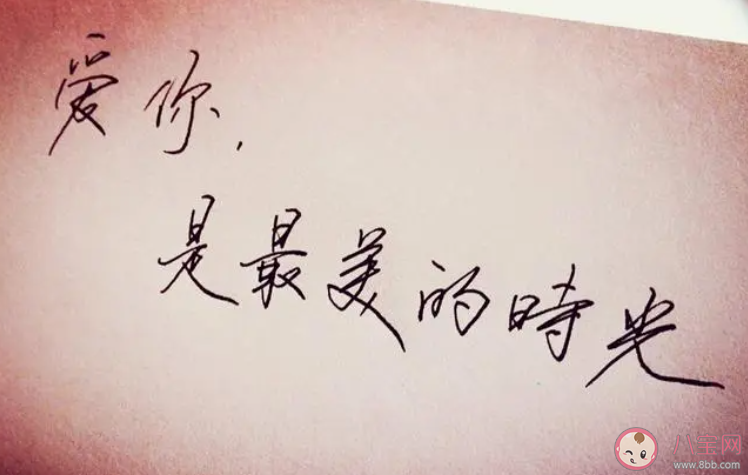 爱你，
是最美的時光
八宝网
www.8bb.com